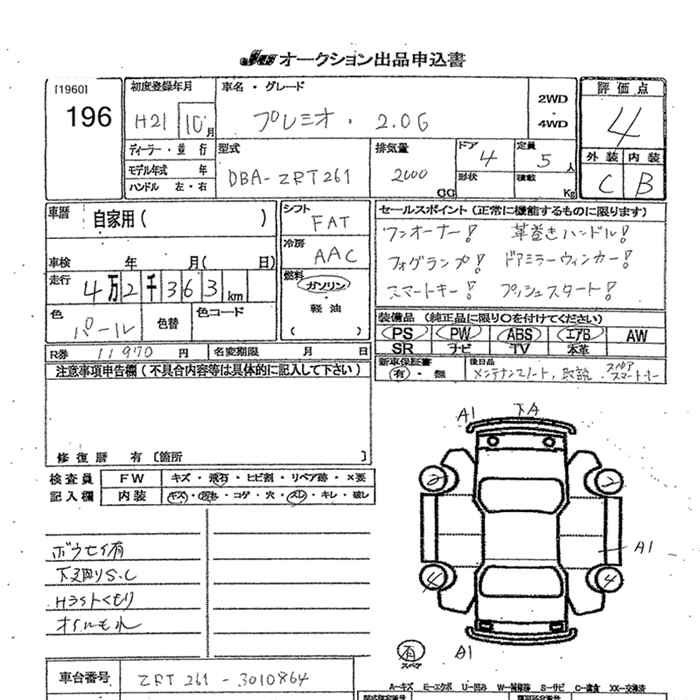 JU オークション出品申込書
[1960]
196
初度登録年月
H21 10月
ディーラー・並行
モデル年式 年
ハンドル 左・右
車名・グレード
プレミオ・2.0G
2WD
・
4WD
型式
DBA-ZRT261
排気量
2000
cc
ドア
4
形状
定員
5人
積載
Kg
評価点
4
外装 内装
C B
車歴
自家用( )
車検 年 月( 日)
走行
4万2千363km
色
パール
色替
色コード
シフト
FAT
冷房
AAC
燃料
ガソリン
・
軽油
( )
セールスポイント (正常に機能するものに限ります)
ワンオーナー! 革巻きハンドル!
フォグランプ! ドアミラーウィンカー!
スマートキー! プッシュスタート!
装備品 (純正品に限り○を付けてください)
PS PW ABS エアB AW
SR ナビ TV 本革
新車保証書
有・無
後日品
メンテナンスノート, 取説, スペアスマートキー
R券 11970 円 名変期限 月 日
注意事項申告欄(不具合内容等は具体的に記入して下さい)
修復歴 有〔箇所 〕
検査員
記入欄
FW キズ・飛石・ヒビ割・リペア跡・×要
内装 キズ・汚れ・コゲ・穴・スレ・キレ・破レ
ボウセイ有
下廻りS.C
Hライトくもり
オイルモレ
A1 下A
2 2
A1
4 4
有
スペア
A1
車台番号 ZRT261-3010864
A-キズ E-エクボ U-凹み W-補修跡 S-サビ C-腐食 XX-交換済